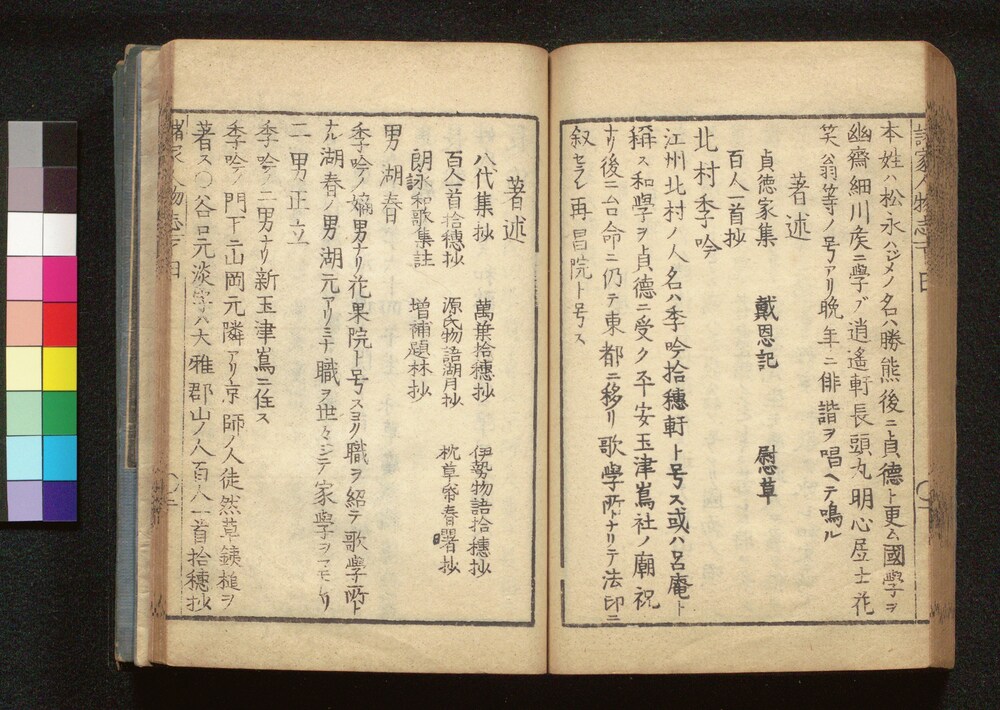 本姓ハ松永ハジメノ名ハ勝熊後ニ貞德ト更ム國學ヲ
幽齋細川矦ニ學ブ逍遙軒長頭丸明心居士花
笑翁等ノ号アリ晩年ニ俳諧ヲ唱ヘテ鳴ル
著述
貞德家集 戴恩記 慰草
百人一首抄
北村季吟
江州北村ノ人名ハ季吟拾穗軒ト号ス或ハ呂庵ト
稱ス和學ヲ貞德ニ受ク平安玉津嶌社ノ廟祝
ナリ後ニ台命ニ仍テ東都ニ移リ歌學所トナリテ法印ニ
叙セラレ再昌院ト号ス
著述
八代集抄 萬葉拾穗抄 伊勢物語拾穗抄
百人一首拾穗抄 源氏物語湖月抄 枕草帋春曙抄
朗詠和歌集註 増補題林抄
男湖春
季吟ノ嫡男ナリ花果院ト号ス父ヨリ職ヲ紹テ歌學所ト
ナル湖春ノ男湖元アリミナ職ヲ世々ニシテ家學ヲマモレリ
二男正立
季吟ノ二男ナリ新玉津嶌ニ住ス
季吟ノ門下ニ山岡元隣アリ京師ノ人徒然草鐵槌ヲ
著ス〇谷口元淡字ハ大雅郡山ノ人百人一首拾穗抄
諸家人物志